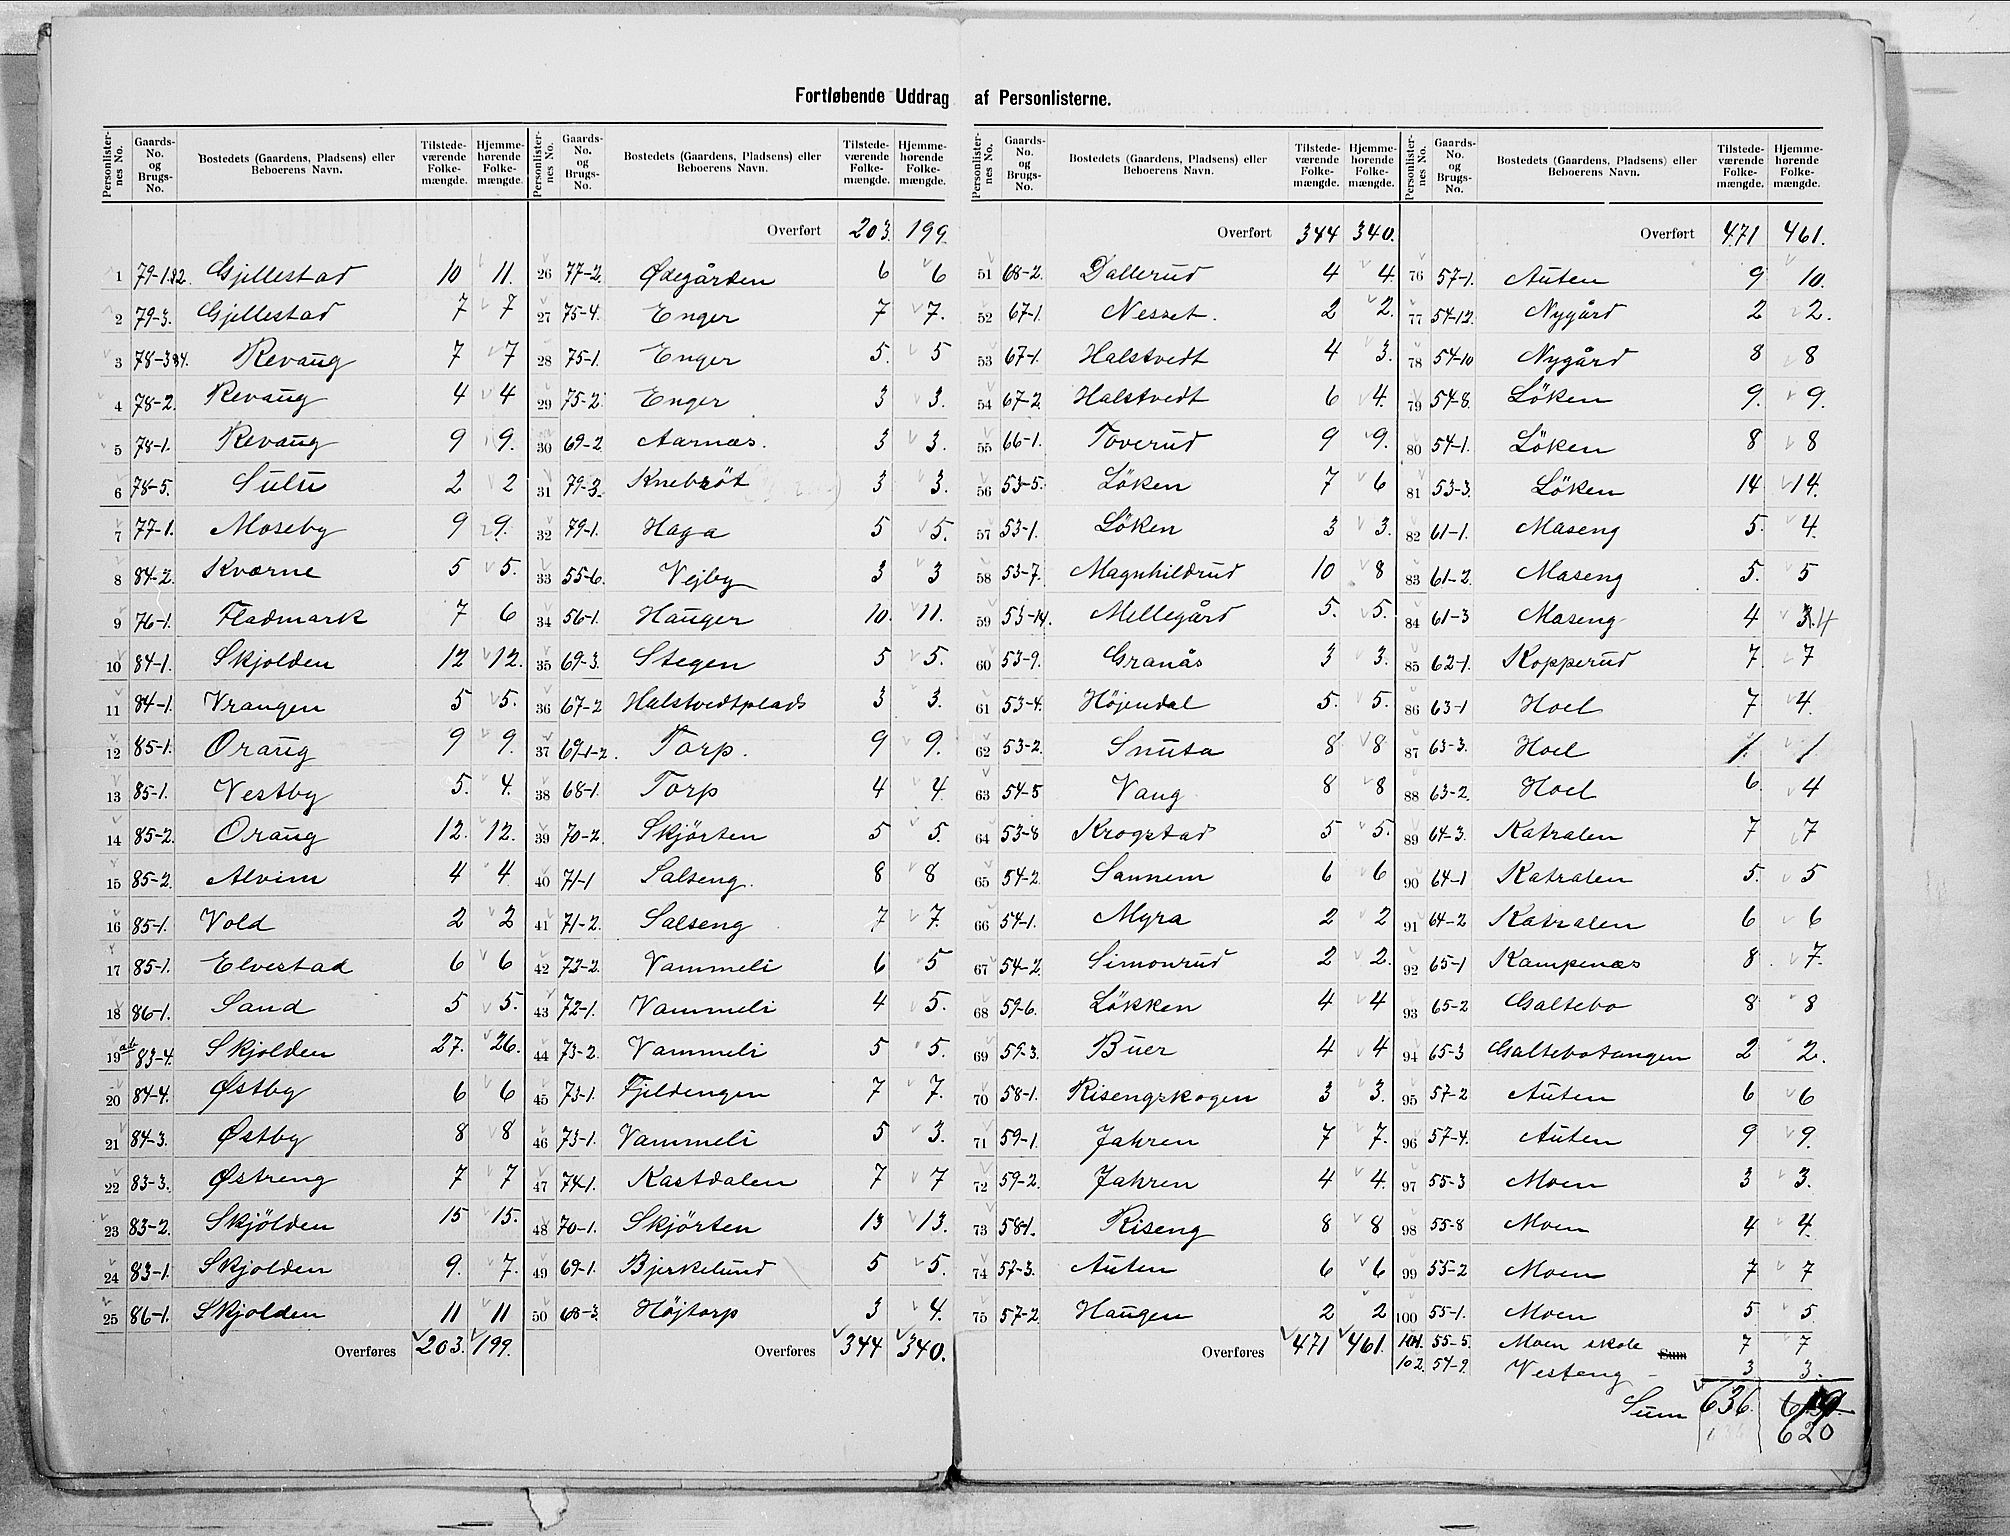 Fortløbende Uddrag af Personlisterne.
Personlisternes No. Gaards-No. og Brugs-No. Bostedets (Gaardens, Pladsens) eller Beboerens Navn. Tilstedeværende Folkemængde. Hjemmehørende Folkemængde.
1 79-1 & 2. Gjillestad 10 11.
2 79-3. Gjillestad 7 7
3 78-3 & 4. Revaug 7 7
4 78-2. Revaug 4 4
5 78-1. Revaug 9 9.
6 78-5. Sulu 2 2
7 77-1. Moseby 9 9.
8 84-2. Kværne 5 5.
9 76-1. Fladmark 7 6
10 84-1. Skjolden 12 12.
11 84-1. Vrangen 5 5.
12 85-1. Oraug 9 9.
13 85-1. Vestby 5. 4.
14 85-2. Oraug 12. 12.
15 85-2. Alvim 4 4
16 85-1. Vold 2 2
17 85-1. Elvestad 6 6
18 86-1. Sand 5 5.
19 ab 83-4. Skjolden 27. 26.
20 84-4. Østby 6 6
21 84-3. Østby 8 8
22 83-3. Østreng 7 7
23 83-2. Skjölden 15 15.
24 83-1. Skjolden 9. 7.
25 86-1. Skjolden 11 11
Overføres 203. 199.
Personlisternes No. Gaards-No. og Brugs-No. Bostedets (Gaardens, Pladsens) eller Beboerens Navn. Tilstedeværende Folkemængde. Hjemmehørende Folkemængde.
Overført 203. 199.
26 77-2. Ødegården 6 6
27 75-4. Enger 7 7.
28 75-1. Enger 5. 5
29 75-2. Enger 3 3.
30 69-2 Aarnæs. 3 3.
31 79-3. Knebröt 3 3.
32 79-1. Haga 5 5.
33 55-6. Vejby 3 3
34 56-1. Hauger 10. 11.
35 69-3. Stegen 5 5.
36 67-2 Halstvedtplads 3 3.
37 69-1-2. Torp. 9 9.
38 68-1. Torp 4 4.
39 70-2. Skjörten 5 5.
40 71-1 Salseng. 8 8
41 71-2. Salseng 7 7.
42 73-2. Vammeli 6 5
43 72-1. Vammeli 4 5.
44 73-2. Vammeli 5 5.
45 73-1. Fjeldengen 7 7.
46 73-1. Vammeli 5 3.
47 74-1. Kastdalen 7 7
48 70-1. Skjörten 13 13.
49 69-1. Bjerkelund 5 5.
50 68-3. Höjtorp 3 4.
Overføres 344 340.
Personlisternes No. Gaards-No. og Brugs-No. Bostedets (Gaardens, Pladsens) eller Beboerens Navn. Tilstedeværende Folkemængde. Hjemmehørende Folkemængde.
Overført 344 340.
51 68-2. Dallerud 4 4.
52 67-1. Nesset. 2 2.
53 67-1. Halstvedt 4 3.
54 67-2. Halstvedt 6 4.
55 66-1. Toverud 9 9.
56 53-5. Löken 7 6
57 53-1. Löken 3 3.
58 53-7. Magnhildrud 10 8
59 53-14. Mellegård 5. 5.
60 53-9. Granås 3 3.
61 53-4. Höjendal 5. 5.
62 53-2. Snuta 8 8
63 54-5 Vang 8 8
64 53-8 Krogstad 5 5.
65 54-2. Sannem 6 6
66 54-1. Myra 2 2
67 54-2. Simonrud 2 2.
68 59-6. Lökken 4 4
69 59-3. Buer 4 4
70 58-1. Risengskogen 3 3.
71 59-1. Jahren 7 7.
72 59-2. Jahren 4 4.
73 58-1. Riseng 8 8
74 57-3. Auten 6 6
75 57-2. Haugen 2 2
Overføres 471 461.
Personlisternes No. Gaards-No. og Brugs-No. Bostedets (Gaardens, Pladsens) eller Beboerens Navn. Tilstedeværende Folkemængde. Hjemmehørende Folkemængde.
Overført 471 461.
76 57-1. Auten 9 10.
77 54-12. Nygård 2 2.
78 54-10 Nygård 8 8
79 54-8. Löken 9. 9.
80 54-1. Löken 8 8
81 53-3. Löken 14 14.
82 61-1. Maseng 5. 4.
83 61-2. Maseng 5. 5
84 61-3 Maseng 4 3. 4
85 62-1. Kopperud 7. 7
86 63-1 Hoel 7 4.
87 63-3. Hoel 1. 1.
88 63-2. Hoel 6. 4
89 64-3. Katralen 7 7
90 64-1 Katralen 5. 5
91 64-2 Katralen 6 6
92 65-1 Kampenæs 8. 7.
93 65-2 Galtebo 8 8
94 65-3 Galtebotangen 2 2.
95 57-2 Auten 6 6
96 57-4. Auten 9 9.
97 55-3 Moen 3 3.
98 55-8 Moen 4 4.
99 55-2 Moen 7 7
100 55-1. Moen 5 5.
101. 55-5. Moen skole Sum 7 7
102. 54-9. Vesteng - 3 3.
Sum 636. 619.
620